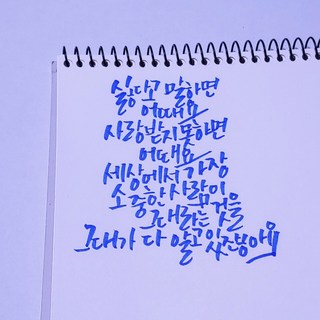 싫다고 말하면
어때요
사랑받지 못하면
어때요
세상에서 가장
소중한 사람이
그대라는 것을
그대가 다 알고 있잖아요